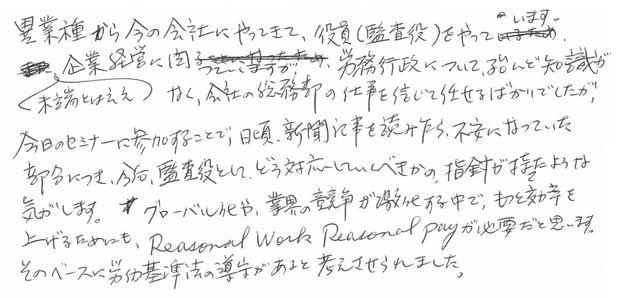 異業種から今の会社にやってきて、役員(監査役)をやっています。
企業経営に関 労務行政について、殆んど知識が
(末端とはいえ) なく、会社の総務部の仕事を信じて任せるばかりでしたが、
今日のセミナーに参加することで、日頃、新聞記事を読みたら、不安になっていた
部分につき、今后、監査役として、どう対応していくべきかの、指針が持てたような
気がします。 グローバル化や、業界の競争が激化する中で、もっと効率を
上げるためにも、Reasonal Work Reasonal payが必要だと思います。
そのベースに労働基準法の遵守があると考えさせられました。